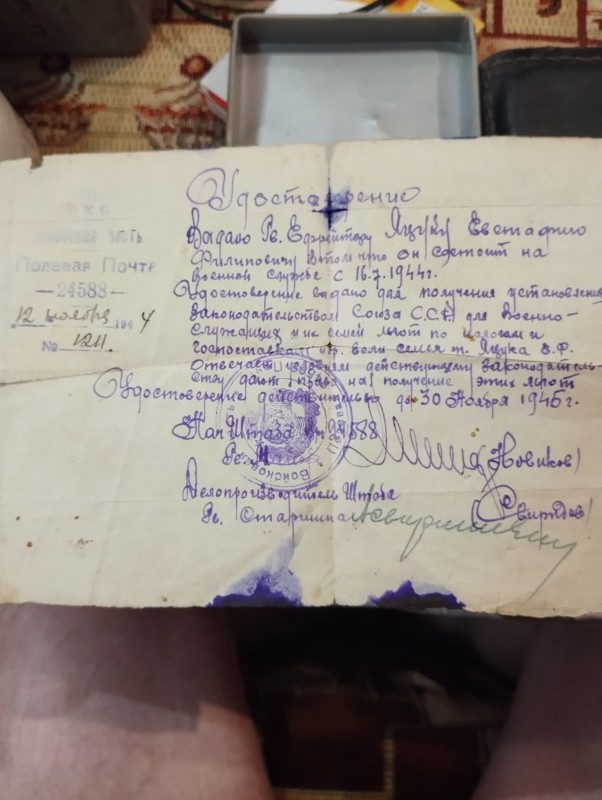 НКО
Часть
Полевая Почта
— 24588 —
12 ноября 1944
№ 1211.
Удостоверение
Выдано Гв. Ефрейтору Яцуку Евстафию
Филиповичу в том что он состоит на
военной службе с 16.7.1944г.
Удостоверение выдано для получения установлен
законодательством Союза С.С.Р. для Военно-
служащих и их семей льгот по налогам и
госпоставкам пр. если семья т. Яцука Е.Ф.
Отвечает условиям действующему законодатель-
ству дают право на получение этих льгот
Удостоверение действительно до 30 Ноября 1945г.
Нач Штаба 24588
Гв. М (Новиков)
Делопроизводитель Штаба
Гв. Старшина (Свиридов)